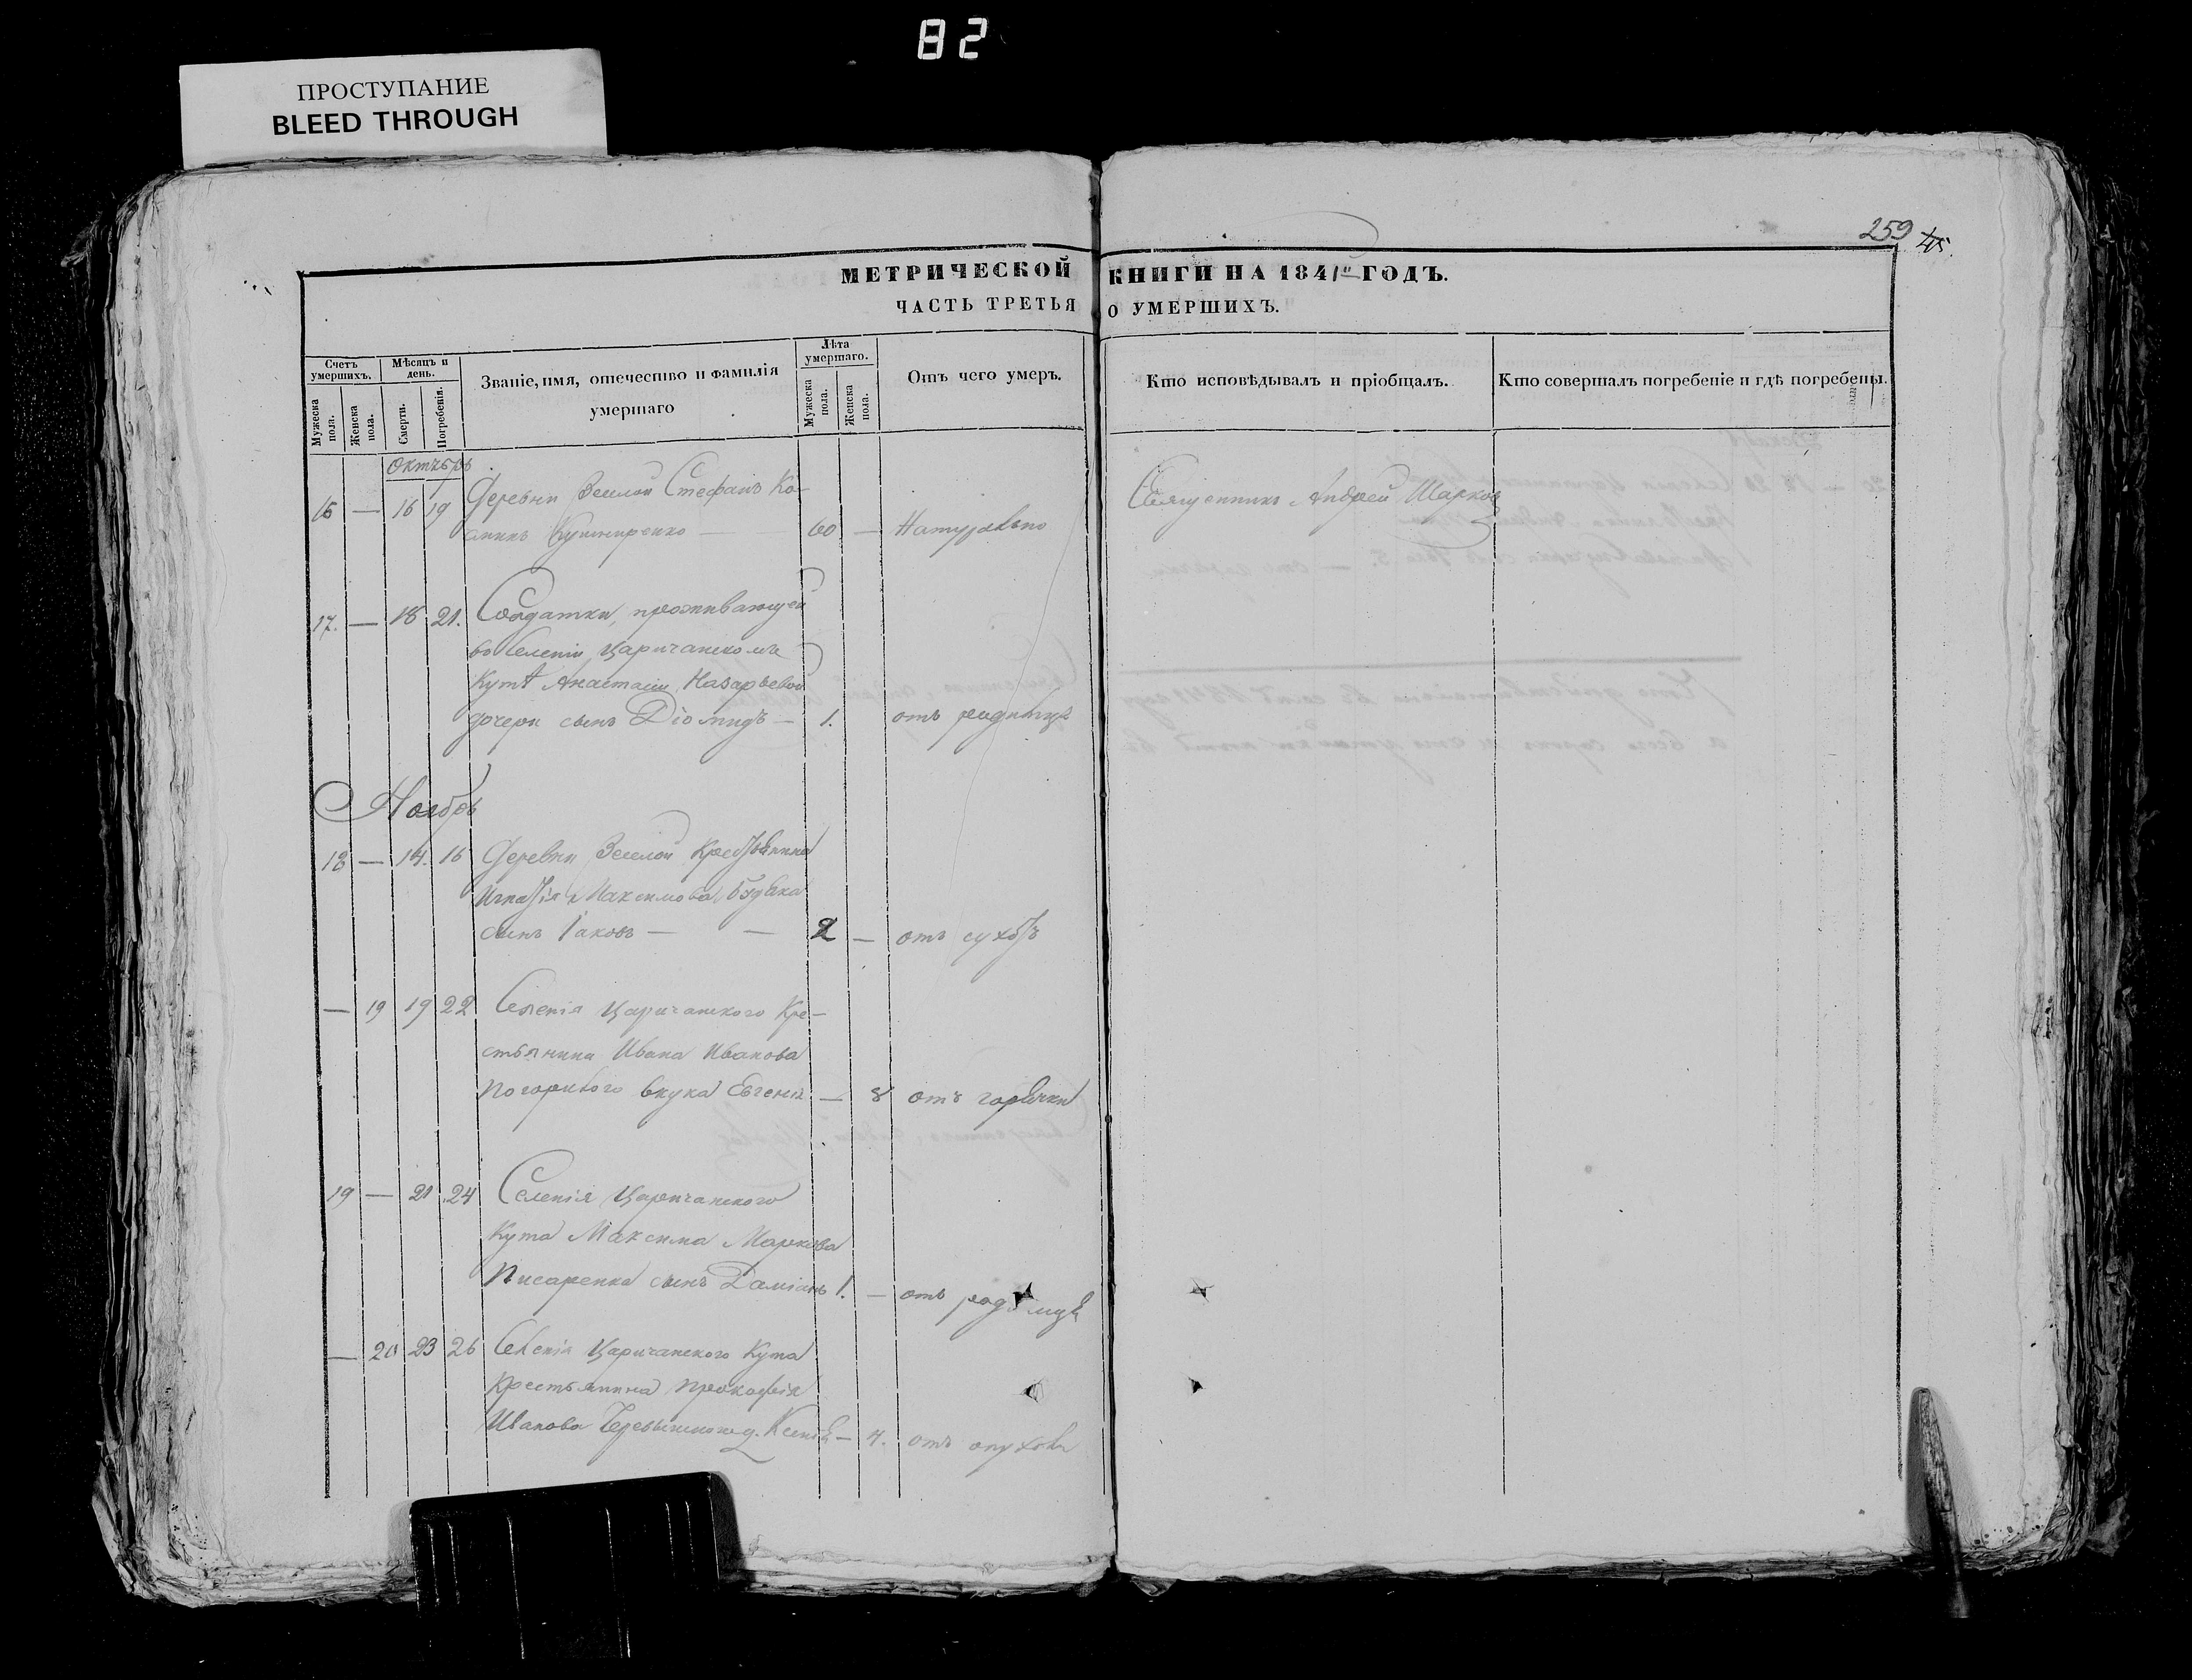 82
ПРОСТУПАНИЕ
BLEED THROUGH
259 45.
МЕТРИЧЕСКОЙ КНИГИ НА 1841й ГОДЪ.
ЧАСТЬ ТРЕТЬЯ О УМЕРШИХЪ.
Счетъ умершихъ. Мѣсяцъ и день. Званіе, имя, отечество и фамилія умершаго Лѣта умершаго. Отъ чего умеръ. Кто исповѣдывалъ и пріобщалъ. Кто совершалъ погребеніе и гдѣ погребены.
Мужеска пола. Женска пола. Смерти. Погребенія. Мужеска пола. Женска пола.
Октябрь
16 — 16 19 Деревни Веселой Стефанъ Ко- Священникъ Андрей Шарков
Кушниренко — 60 — Натурально
17. — 18 21. Солдатки, проживающей
въ Селеніи Царичанскомъ
Кутѣ Анастасіи Назарьевой
дочери сынъ Діомидъ — 1. отъ родимца
Ноябрь
18 — 14. 16 Деревни Веселой Крестьянина
Игнатія Максимова
сынъ Іаковъ — — 2 — отъ сухотъ
— 19 19 22 Селенія Царичанского Кре-
стьянина Ивана Иванова
Погорилого внука Евгенія — 8 отъ горячки
19 — 21 24 Селенія Царичанского
Кута Максима Маркова
Писаренка сынъ Даміанъ 1. — отъ родимца
— 20 23 26 Селенія Царичанского Кута
Крестьянина Прокофія
Иванова д. Ксенія — 4. отъ опухоли